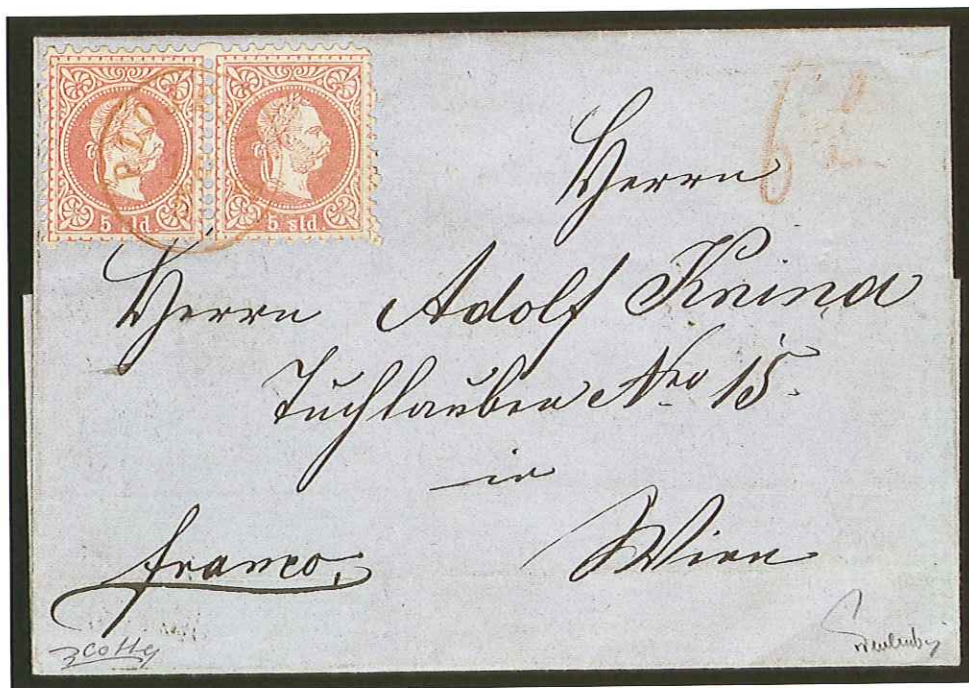 5 sld 5 sld
Herrn
Herrn Adolf Knina
Tuchlauben Nro 15.
in
Wien
franco,